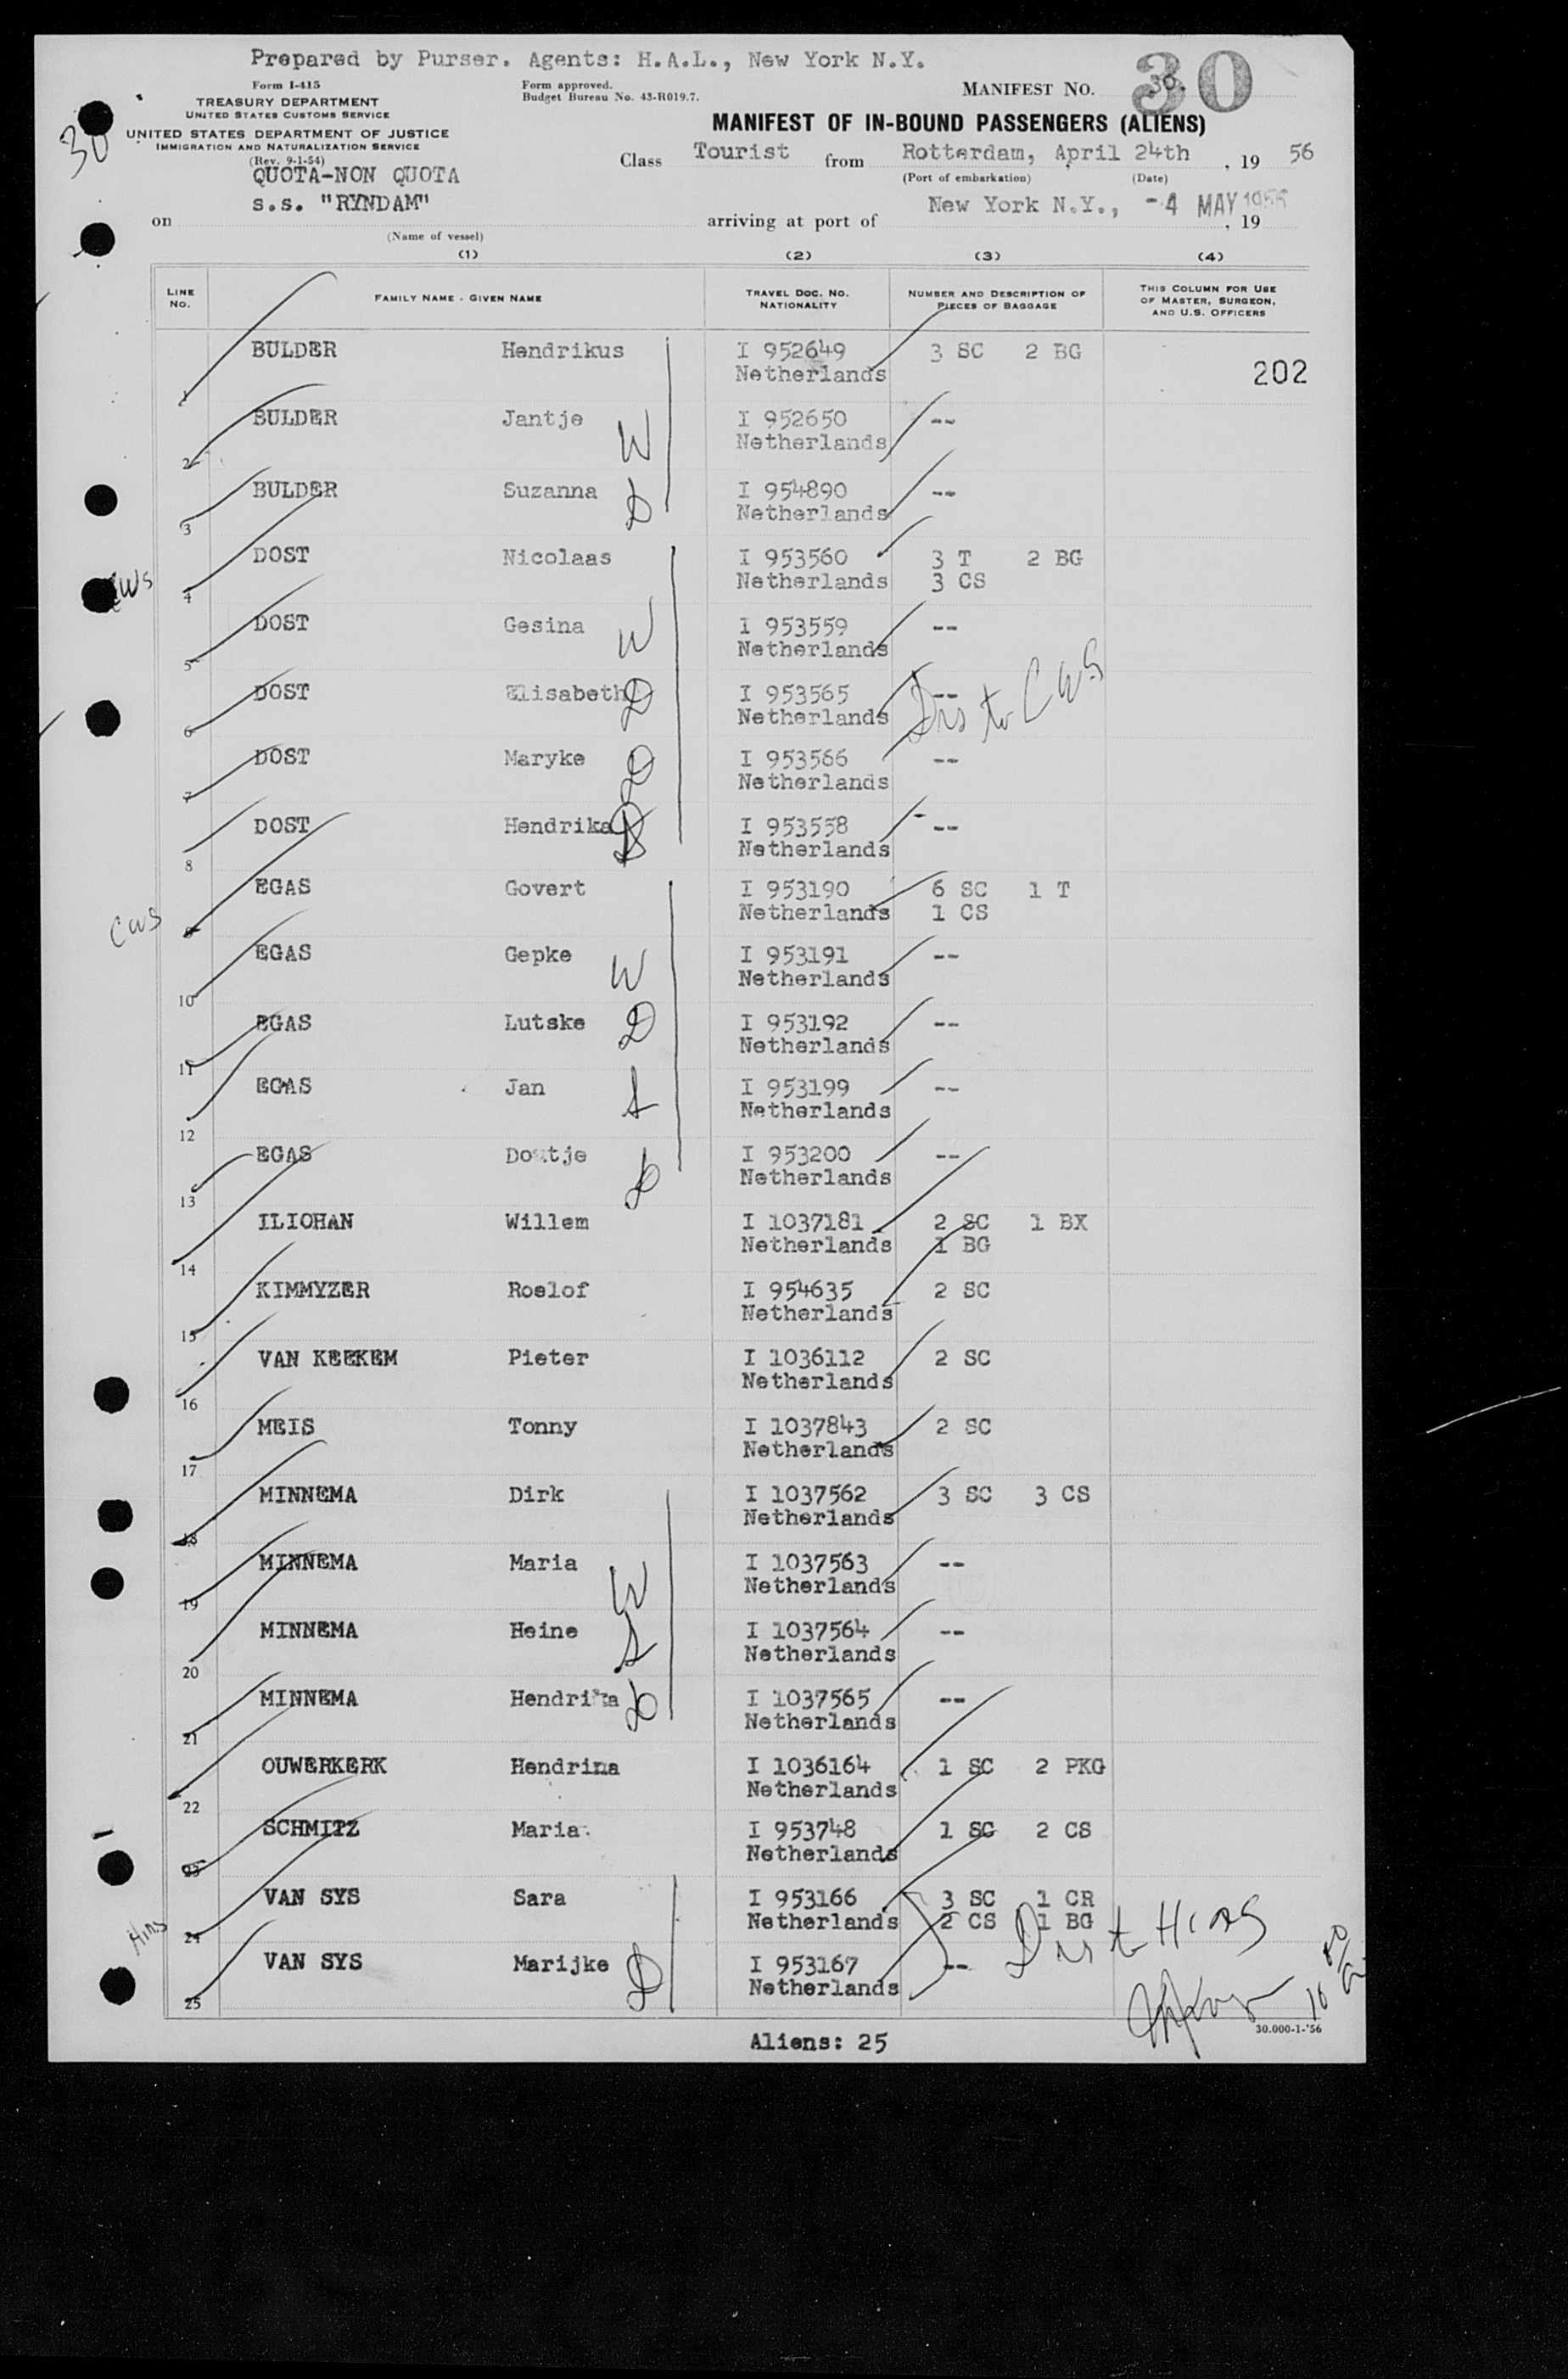 Prepared by Purser. Agents: H.A.L., New York N.Y.
Form I-415
TREASURY DEPARTMENT
UNITED STATES CUSTOMS SERVICE
UNITED STATES DEPARTMENT OF JUSTICE
IMMIGRATION AND NATURALIZATION SERVICE
(Rev. 9-1-54)
Form approved.
Budget Bureau No. 43-R019.7.
MANIFEST NO. 30
30.
30
MANIFEST OF IN-BOUND PASSENGERS (ALIENS)
QUOTA-NON QUOTA
Class Tourist from Rotterdam, April 24th, 19 56
(Port of embarkation) (Date)
on s.s. "RYNDAM" arriving at port of New York N.Y., -4 MAY 1956, 19
(Name of vessel)
(1) (2) (3) (4)
LINE No. FAMILY NAME - GIVEN NAME TRAVEL DOC. NO. NATIONALITY NUMBER AND DESCRIPTION OF PIECES OF BAGGAGE THIS COLUMN FOR USE OF MASTER, SURGEON, AND U.S. OFFICERS
1 BULDER Hendrikus I 952649 3 SC 2 BG
Netherlands 202
2 BULDER Jantje W I 952650 --
Netherlands
3 BULDER Suzanna D I 954890 --
Netherlands
4 DOST Nicolaas I 953560 3 T 2 BG
CWS Netherlands 3 CS
5 DOST Gesina W I 953559 --
Netherlands
6 DOST Elisabeth D I 953565 -- Dis to CWS
Netherlands
7 DOST Maryke D I 953566 --
Netherlands
8 DOST Hendrika D I 953558 --
Netherlands
9 EGAS Govert I 953190 6 SC 1 T
CWS Netherlands 1 CS
10 EGAS Gepke W I 953191 --
Netherlands
11 EGAS Lutske D I 953192 --
Netherlands
12 EGAS Jan S I 953199 --
Netherlands
13 EGAS Doutje D I 953200 --
Netherlands
14 ILIOHAN Willem I 1037181 2 SC 1 BX
Netherlands 1 BG
15 KIMMYZER Roelof I 954635 2 SC
Netherlands
16 VAN KEEKEM Pieter I 1036112 2 SC
Netherlands
17 MEIS Tonny I 1037843 2 SC
Netherlands
18 MINNEMA Dirk I 1037562 3 SC 3 CS
Netherlands
19 MINNEMA Maria W I 1037563 --
Netherlands
20 MINNEMA Heine S I 1037564 --
Netherlands
21 MINNEMA Hendrika D I 1037565 --
Netherlands
22 OUWERKERK Hendrina I 1036164 1 SC 2 PKG
Netherlands
23 SCHMITZ Maria I 953748 1 SC 2 CS
Netherlands
24 VAN SYS Sara I 953166 3 SC 1 CR
Hias Netherlands 2 CS 1 BG Dis to HIAS
25 VAN SYS Marijke D I 953167 --
Netherlands
30.000-1-'56
Aliens: 25